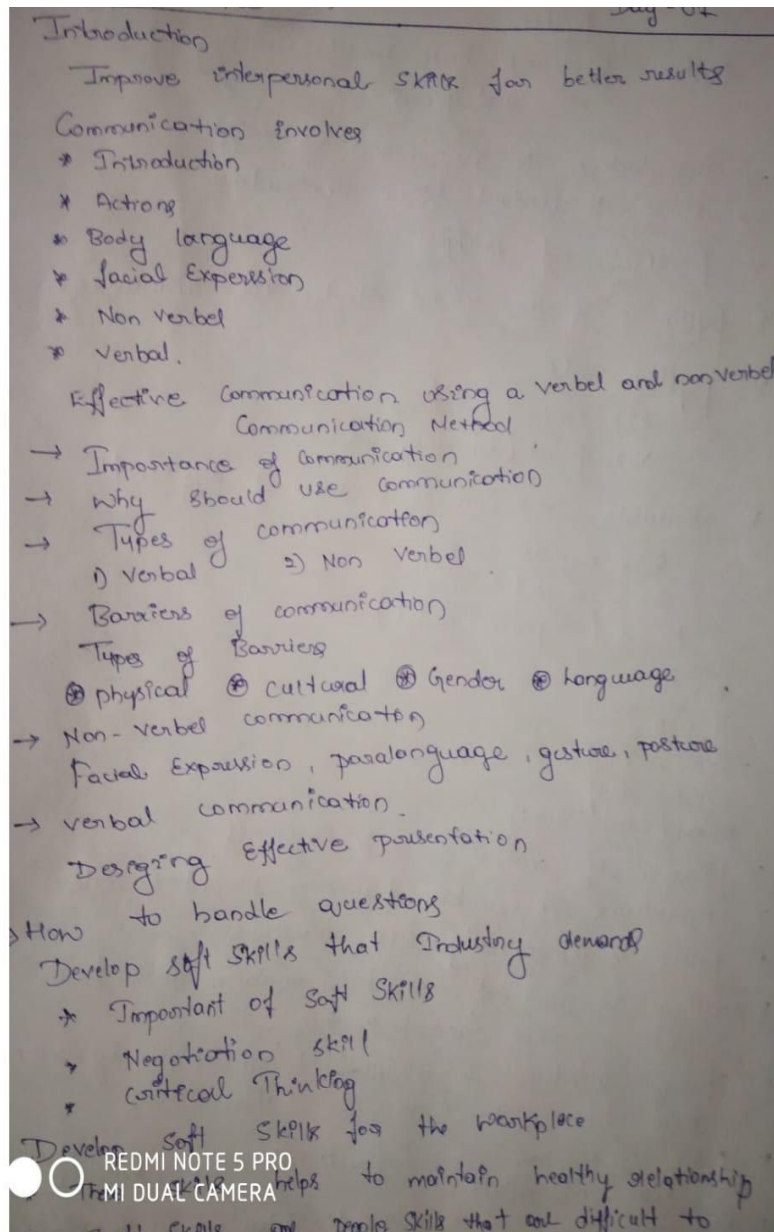 Day - 01
Introduction
Improve interpersonal skills for better results
Communication involves
* Introduction
* Actions
* Body language
* facial Experssion
* Non verbel
* verbal.
Effective Communication using a verbel and non verbel
Communication Method
→ Importance of communication
→ why should use communication
→ Types of communication
1) verbal 2) Non verbel
→ Barriers of communication
Types of Barriers
⊛ physical ⊛ cultural ⊛ Gender ⊛ Language
→ Non-verbel communication
Facial Expression, paralanguage, gesture, posture
→ verbal communication.
Desiging Effective presentation
→ How to handle questions
Develop soft skills that Industry demands
* Important of Soft Skills
* Negotiation skill
* critical Thinking
Develop soft skills for the workplace
skills helps to maintain healthy relationship
skills are people skills that are difficult to
REDMI NOTE 5 PRO
MI DUAL CAMERA